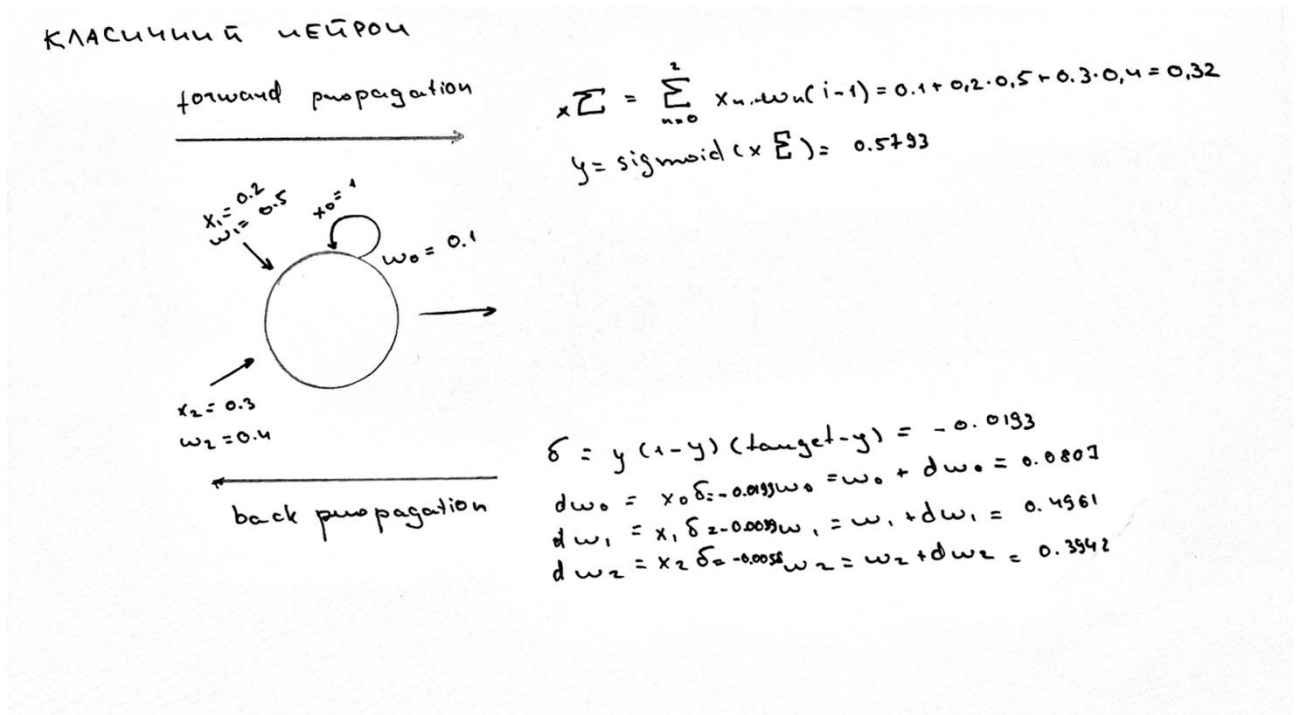 КЛАСИЧНИЙ НЕЙРОН
forward propagation
xΣ = Σ xn..wn(i-1) = 0.1+0,2·0,5+0.3·0,4=0,32
2
n=0
y= sigmoid(xΣ)= 0.5793
x₁=0.2
w₁=0.5
x₀=1
w₀=0.1
x₂=0.3
w₂=0.4
back propagation
δ = y(1-y)(target-y) = -0.0193
dw₀ = x₀δ=-0.0193w₀ =w₀ + dw₀ = 0.0807
dw₁ = x₁δ=-0.0039w₁ = w₁+dw₁ = 0.4961
dw₂ = x₂δ=-0.0058w₂ = w₂+dw₂ = 0.3942